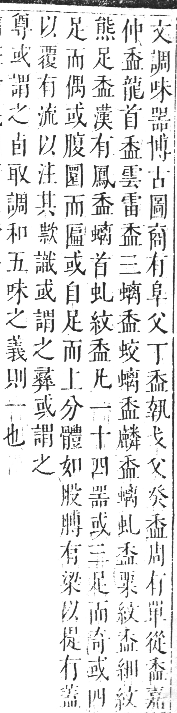 文調味器博古圖商有阜父丁盉執戈父癸盉周有單從盉嘉
仲盉龍首盉雲雷盉三螭盉蛟螭盉麟盉螭虬盉粟紋盉細紋
熊足盉漢有鳳盉螭首虬紋盉凡一十四器或三足而奇或四
足而偶或腹圜而匾或自足而上分體如股膊有梁以提有蓋
以覆有流以注其款識或謂之彞或謂之
尊或謂之卣取調和五味之義則一也